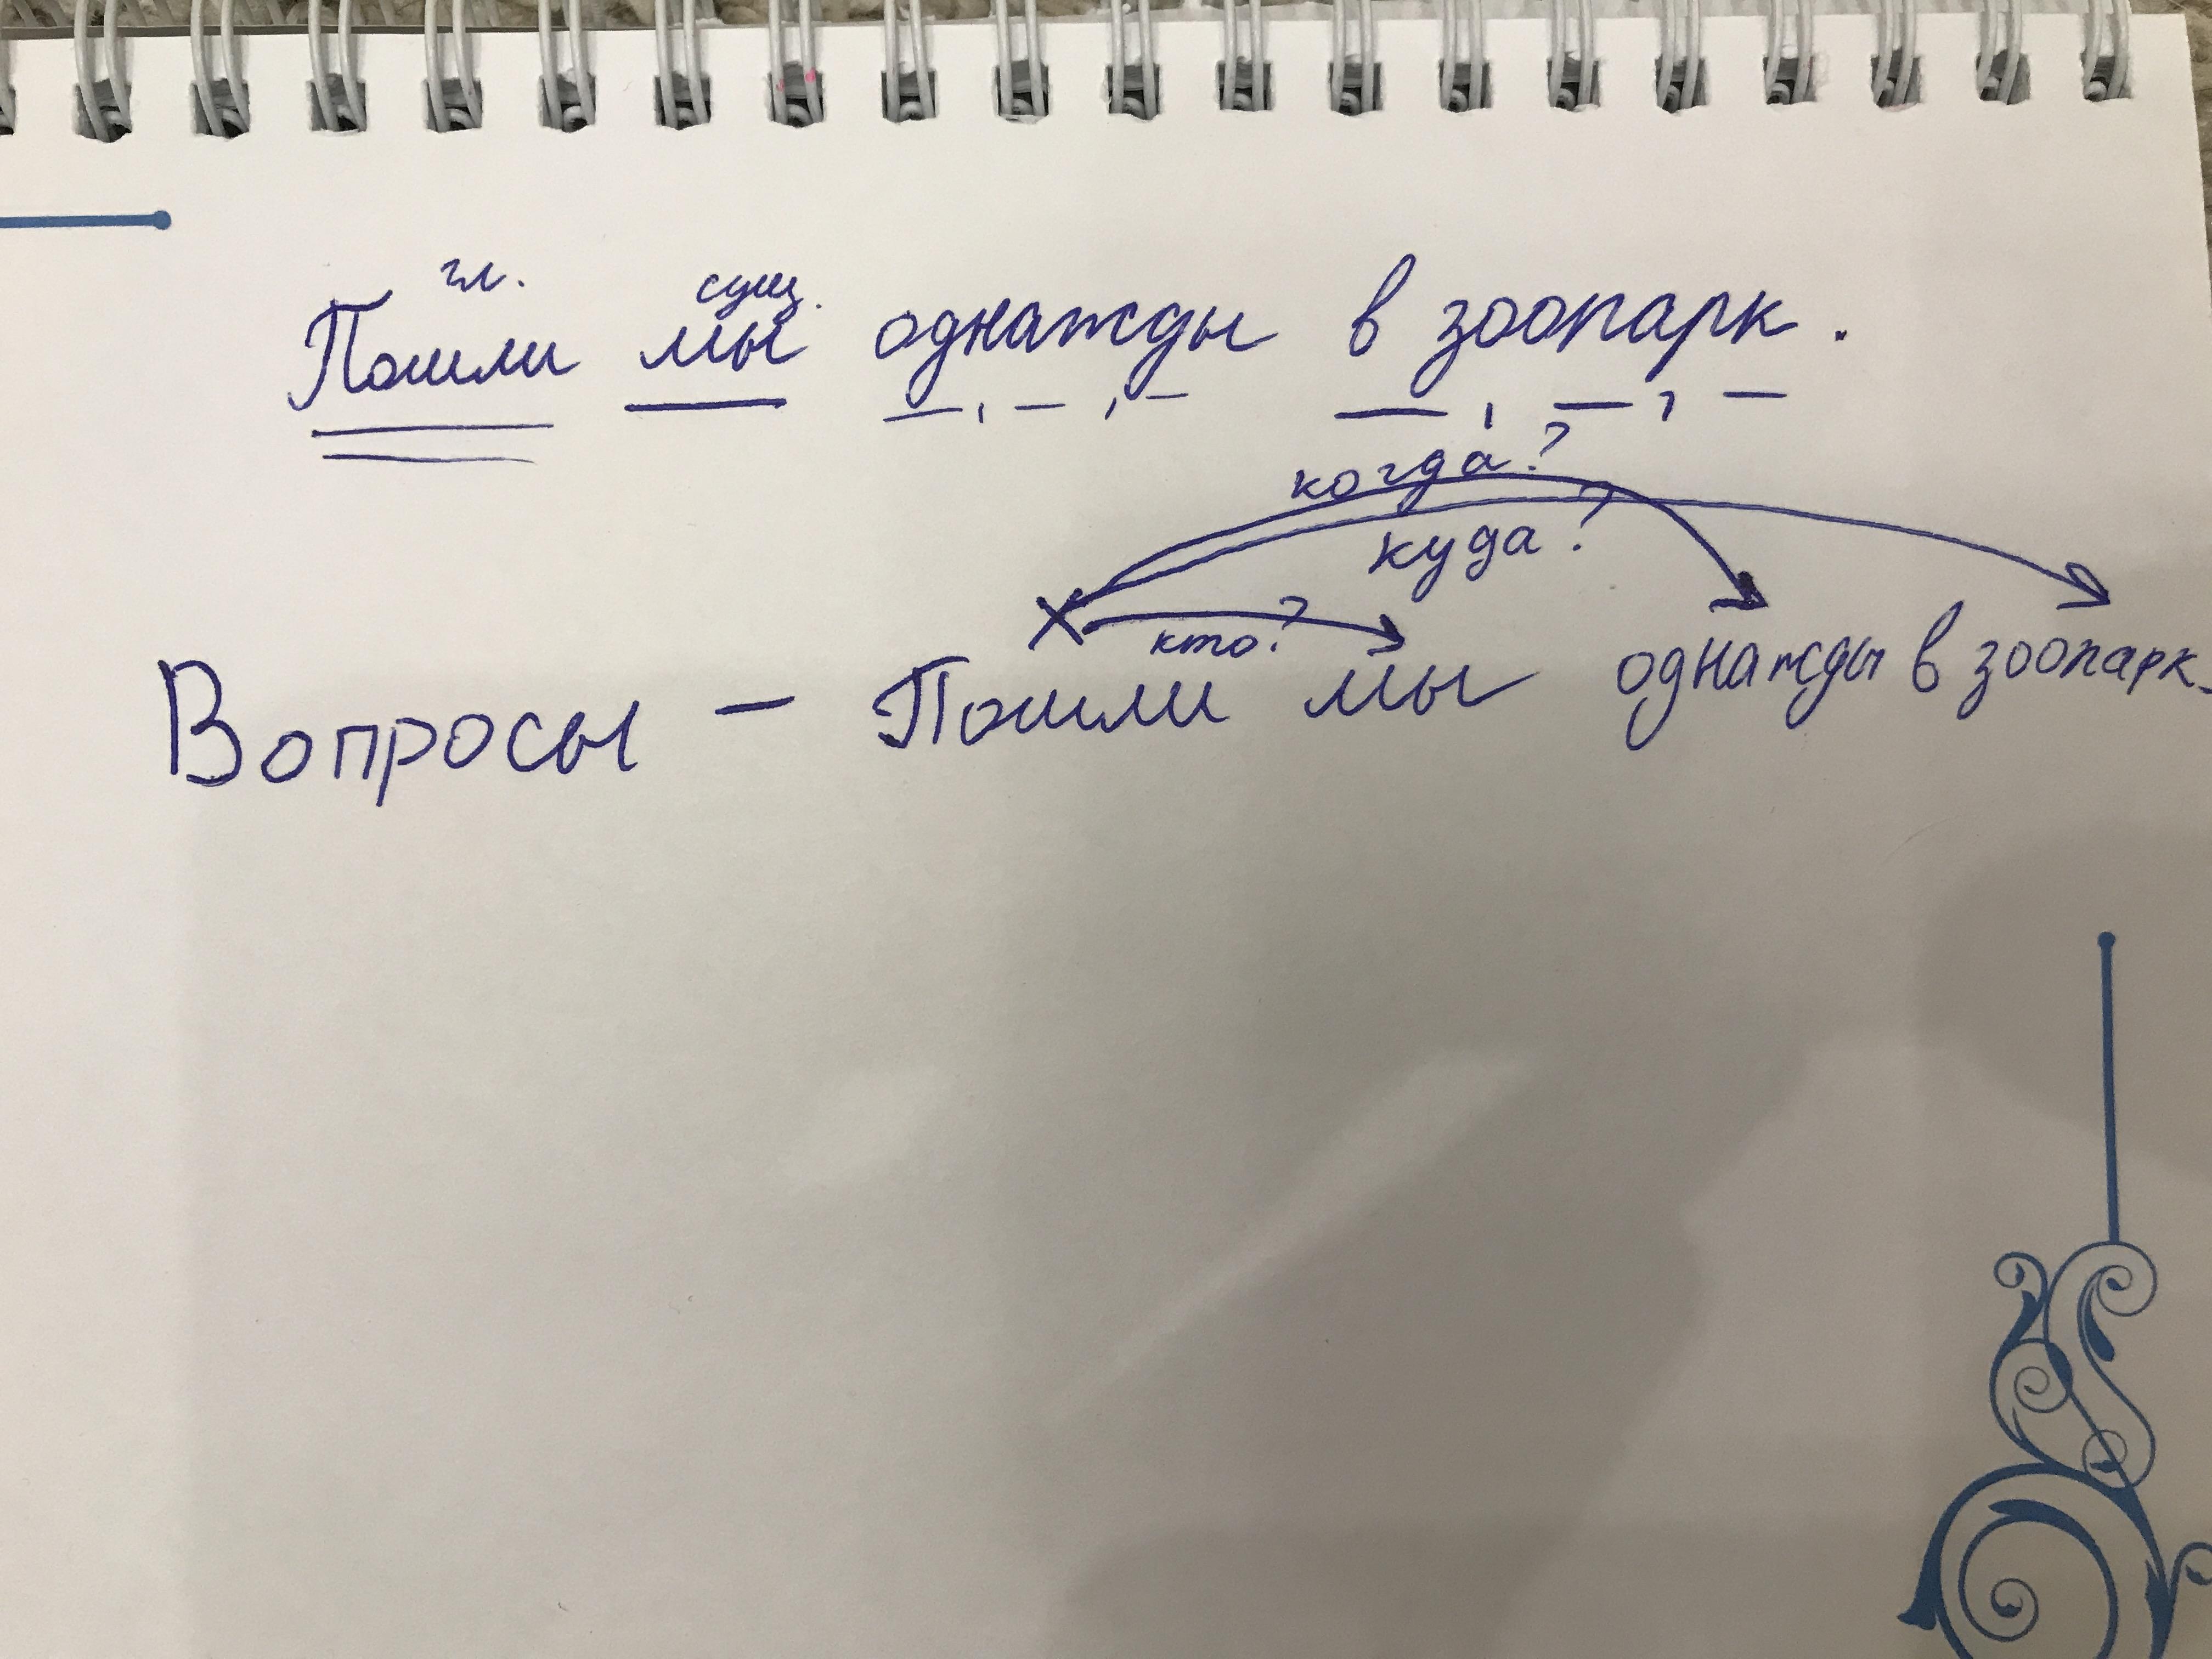 гл. сущ.
Пошли мы однажды в зоопарк.
когда?
куда?
кто?
Вопросы - Пошли мы однажды в зоопарк.